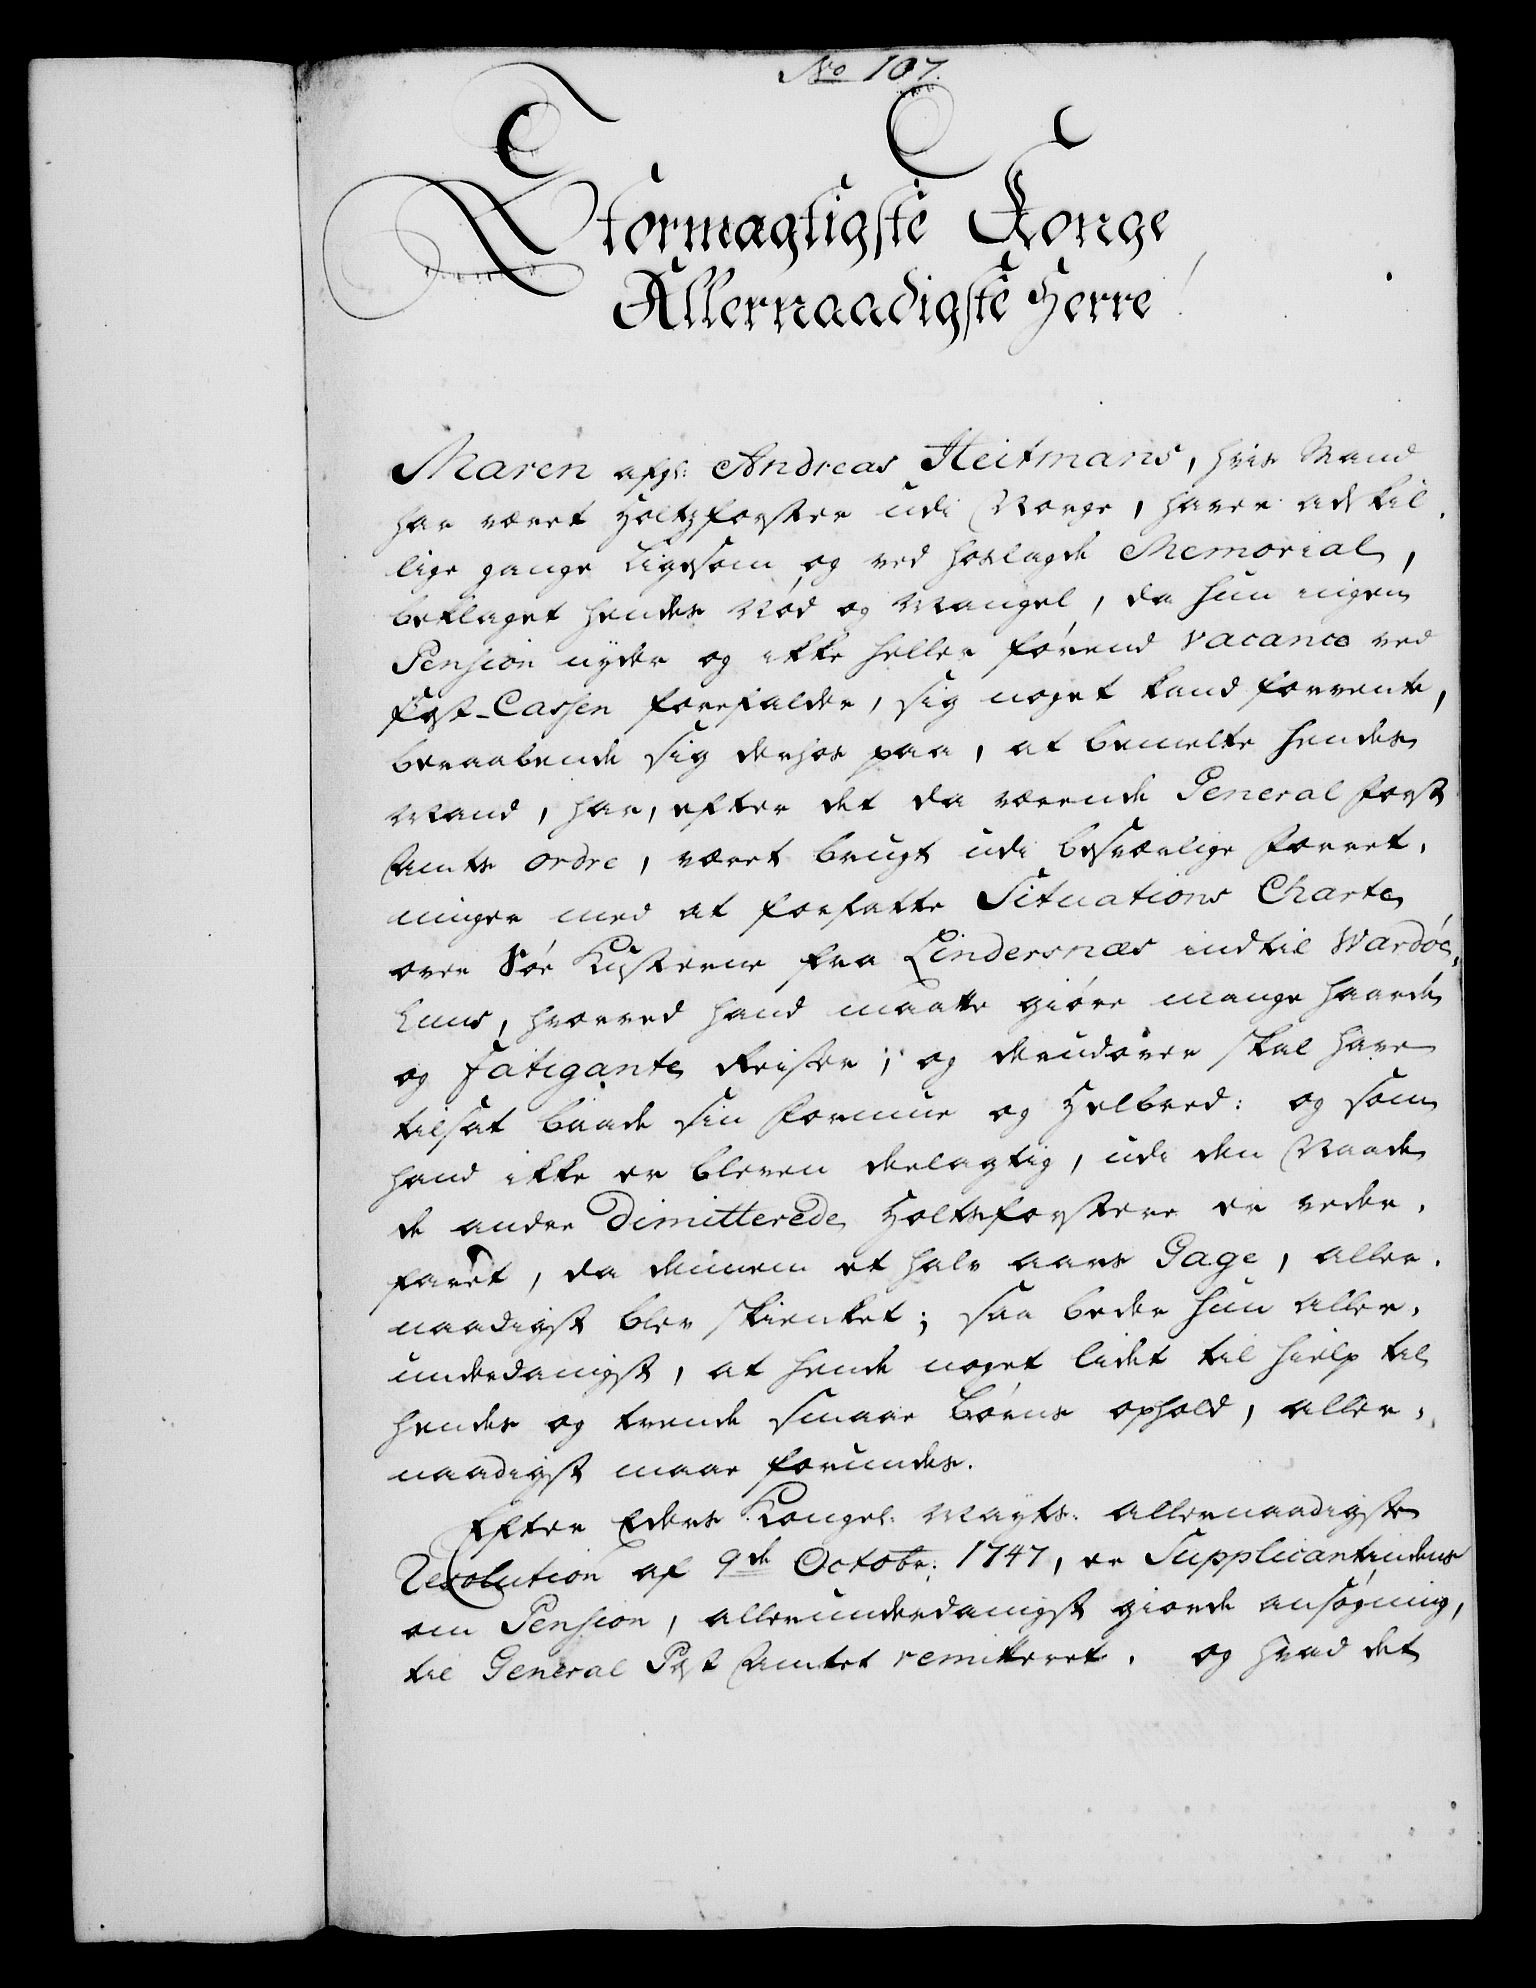 No 107.
Stormægtigste Konge
Allernaadigste Herre!
Maren afgl: Andreas Heitmans, hvis Mand
har været Holtzforster udi Norge, haver adskil-
lige gange ligesom og ved hoslagde Memorial,
beklaget hendes Nød og Mangel, da hun ingen
Pension nyder og ikke heller førend vacance ved
Post-Cassen forefalder, sig noget kand forvente,
beraabende sig derhos paa, at bemelte hendes
Mand, har, efter det da værende General Forst
Amts ordre, været brugt udi besværlige Forret-
ninger med at forfatte Situations Charte
over Søe Kusterne fra Lindersnæs indtil Wardøe-
huus, hvorved hand maatte giøre mange haarde
og fatigante Reiser; og derudover skal have
tilsat baade sin Formue og Helbred: og som
hand ikke er bleven deelagtig, udi den Naade
de andre Dimitterede Holtzforstere er veder-
faret, da dennem et halv aars Gage, aller-
naadigst blev skienket; saa beder hun aller-
underdanigst, at hende noget lidet til hielp til
hendes og trende smaae Børns ophold, aller-
naadigst maae forundes.
Efter Eders Kongel: Mayts: allernaadigste
Resolution af 9de Octobr: 1747, er Supplicantindens
om Pension, allerunderdanigst giorde ansøgning,
til General Post Amtet remitteret. og hvad det